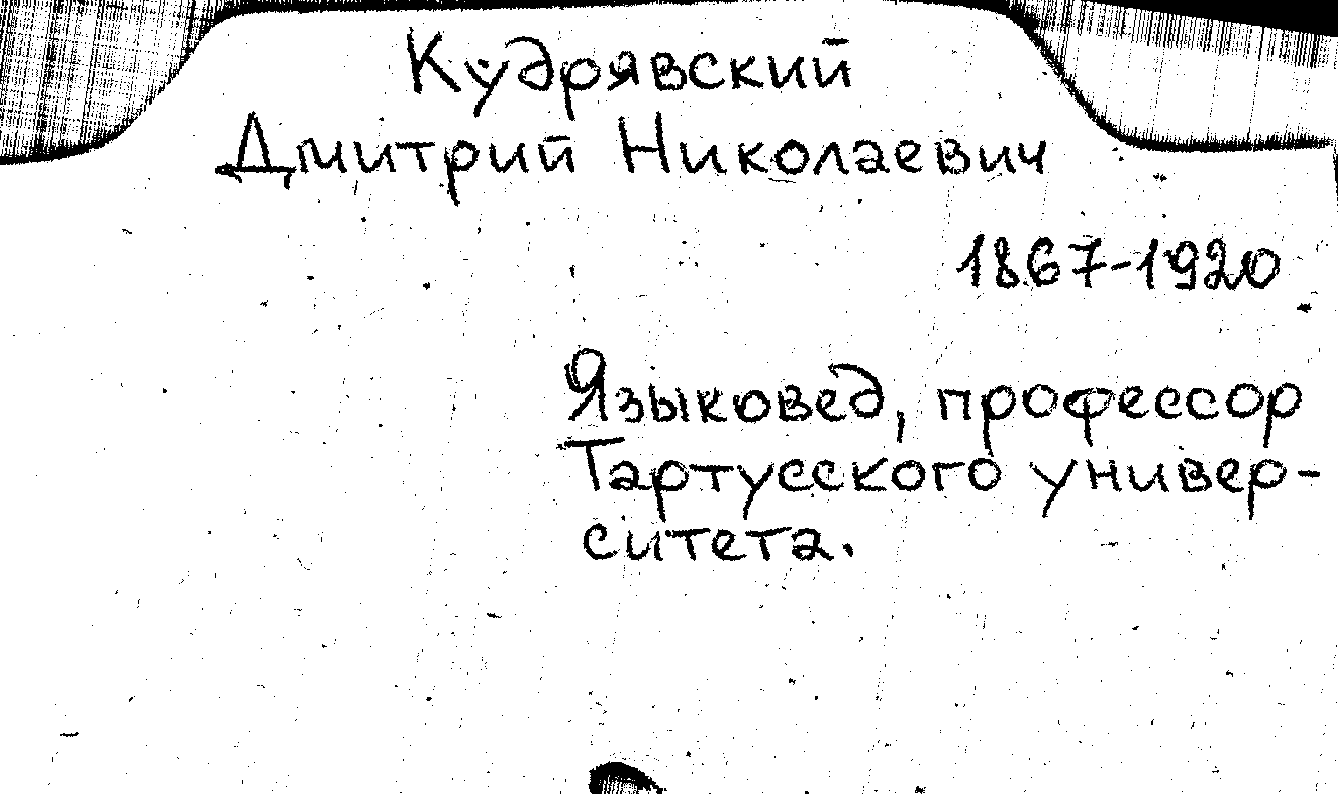 Кудрявский
Дмитрий Николаевич
1867-1920
Языковед, профессор
Тартусского универ-
ситета.